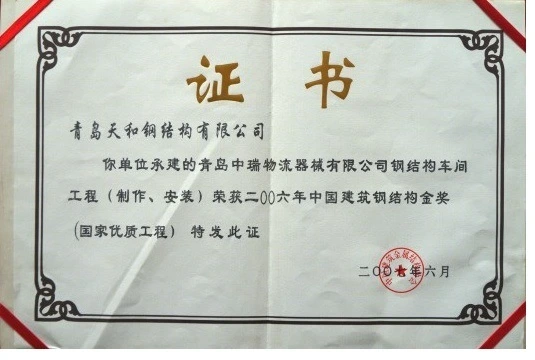 证书
青岛天和钢结构有限公司
你单位承建的青岛中瑞物流器械有限公司钢结构车间
工程（制作、安装）荣获二〇〇六年中国建筑钢结构金奖
(国家优质工程) 特发此证
二〇〇六年六月